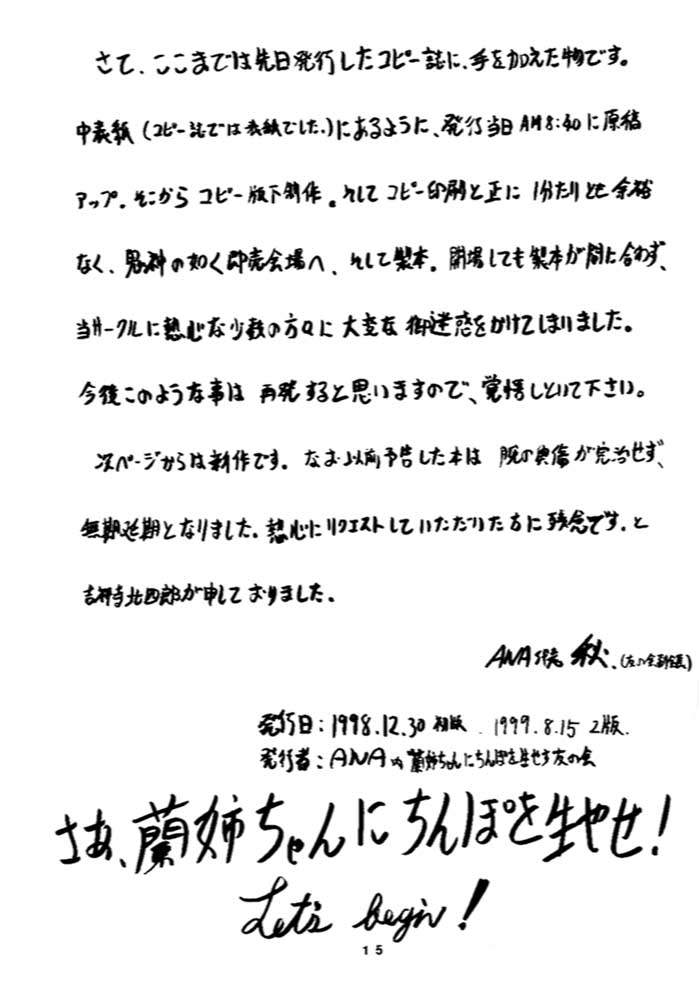 さて、ここまでは先日発行したコピー誌に、手を加えた物です。
中表紙(コピー誌では表紙でした。)にあるように、発行当日AM8:40に原稿
アップ。そこからコピー版下制作。そしてコピー印刷と正に1分たりとも余裕
なく、鬼神の如く即売会場へ、そして製本。開場しても製本が間に合わず、
当サークルに熱心な少数の方々に大変な御迷惑をかけてしまいました。
今後このような事は再発すると思いますので、覚悟しといて下さい。
次ページからは新作です。なお以前予告した本は腕の古傷が完治せず、
無期延期となりました。熱心にリクエストしていただいた方に残念です。と
吉祥寺北四郎が申しておりました。
ANA 秋.
発行日:1998.12.30 初版. 1999.8.15 2版.
発行者:ANA内 蘭姉ちゃんにちんぽを生やす友の会
さあ、蘭姉ちゃんにちんぽを生やせ!
Let's begin!
15